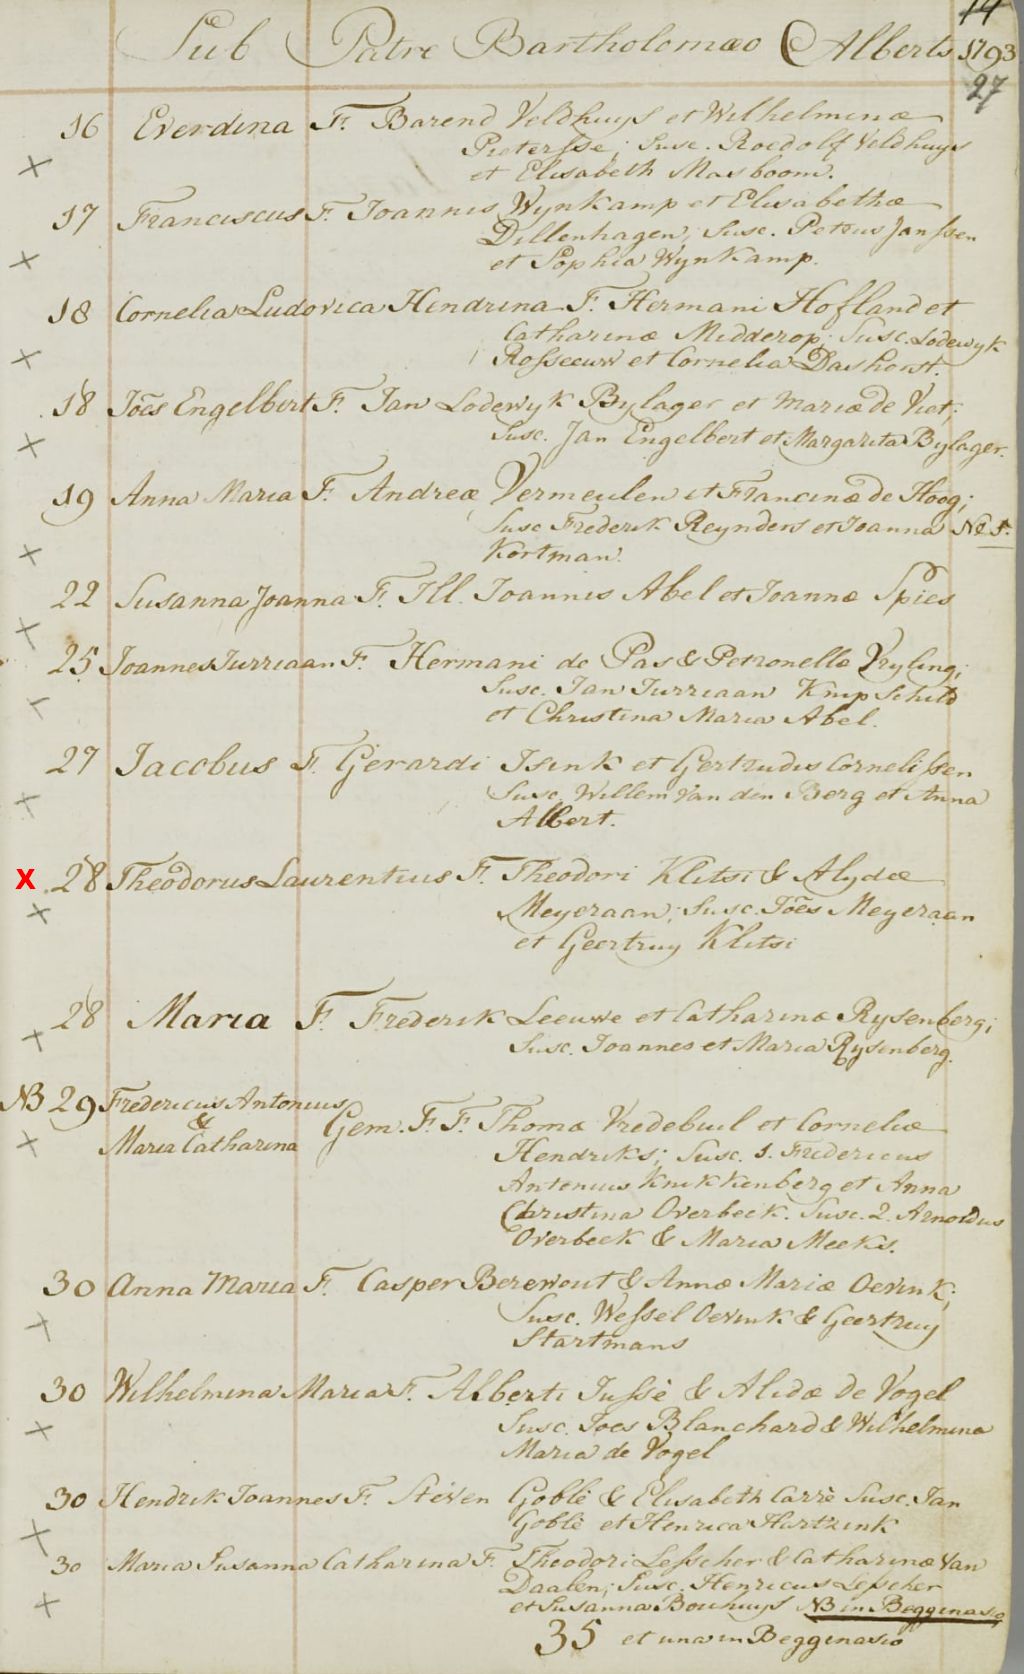 14
Sub Patre Bartholomæo Alberts 1793
27
16 Everdina F. Barend Veldhuys et Wilhelminæ
Pietersse; Susc. Roedolf Veldhuys
et Elisabeth Masboom.
X
17 Franciscus F. Joannis Wynkamp et Elisabethæ
Dillenhagen; Susc. Petrus Janssen
et Sophia Wynkamp.
X
18 Cornelia Ludovica Hendrina F. Hermani Hofland et
Catharinæ Midderop; Susc. Lodewyk
Rosseeuw et Cornelia Dashorst.
X
18 Joēs Engelbert F. Jan Lodewyk Bylager et Mariæ de Viet;
Susc. Jan Engelbert et Margarita Bylager.
X
19 Anna Maria F. Andreæ Vermeulen et Francinæ de Hoog;
Susc Frederik Reynders et Joanna
Kortman.
X
22 Susanna Joanna F. Ill. Joannis Abel et Joannæ Spies
X
25 Joannes Jurriaan F. Hermani de Pas & Petronellæ Vryling;
Susc. Jan Jurriaan Knipschild
et Christina Maria Abel.
27 Jacobus F. Gerardi Isink et Gertrudis Cornelissen
Susc. Willem Van den Berg et Anna
Albert.
X
X 28 Theodorus Laurentius F. Theodori Klitsi & Alydæ
Meyeraan; Susc. Joēs Meyeraan
et Geertruy Klitsi
X
28 Maria F. Frederik Leeuwe et Catharinæ Rysenberg;
Susc. Joannes et Maria Rysenberg.
X
NB 29 Fredericus Antonius
&
Maria Catharina Gem. F. F. Thomæ Vredebuil et Corneliæ
Hendriks; Susc. 1. Fredericus
Antonius Knikkenberg et Anna
Christina Overbeek. Susc. 2. Arnoldus
Overbeek & Maria Meeks.
X
30 Anna Maria F. Casper Berewout & Annæ Mariæ Oevink;
Susc. Wessel Oevink & Geertruy
Startmans
X
30 Wilhelmina Maria F. Alberti Jussè & Alidæ de Vogel
Susc. Joes Blanchard & Wilhelmina
Maria de Vogel
X
30 Hendrik Joannes F. Steven Goblè & Elisabeth Carrè Susc. Jan
Goblè et Henrica Hartzink
X
30 Maria Susanna Catharina F. Theodori Lesscher & Catharinæ Van
Daalen; Susc. Henricus Lesscher
et Susanna Bouhuys NB in Begginasio
X
35 et una in Begginasio